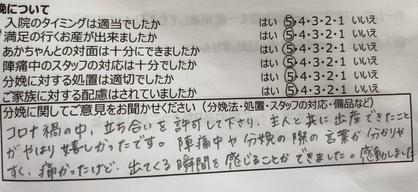 娩について
入院のタイミングは適当でしたか はい ⑤・4・3・2・1 いいえ
満足の行くお産が出来ましたか はい ⑤・4・3・2・1 いいえ
あかちゃんとの対面は十分にできましたか はい ⑤・4・3・2・1 いいえ
陣痛中のスタッフの対応は十分でしたか はい ⑤・4・3・2・1 いいえ
分娩に対する処置は適切でしたか はい ⑤・4・3・2・1 いいえ
ご家族に対する配慮はされていましたか はい ⑤・4・3・2・1 いいえ
分娩に関してご意見をお聞かせください（分娩法・処置・スタッフの対応・備品など）
コロナ禍の中、立ち合いを許可して下さり、主人と共に出産できたこと
がやはり嬉しかったです。陣痛中や分娩の際の言葉が分かりや
すく、痛かったけど、出てくる瞬間を感じることができました。感動しました